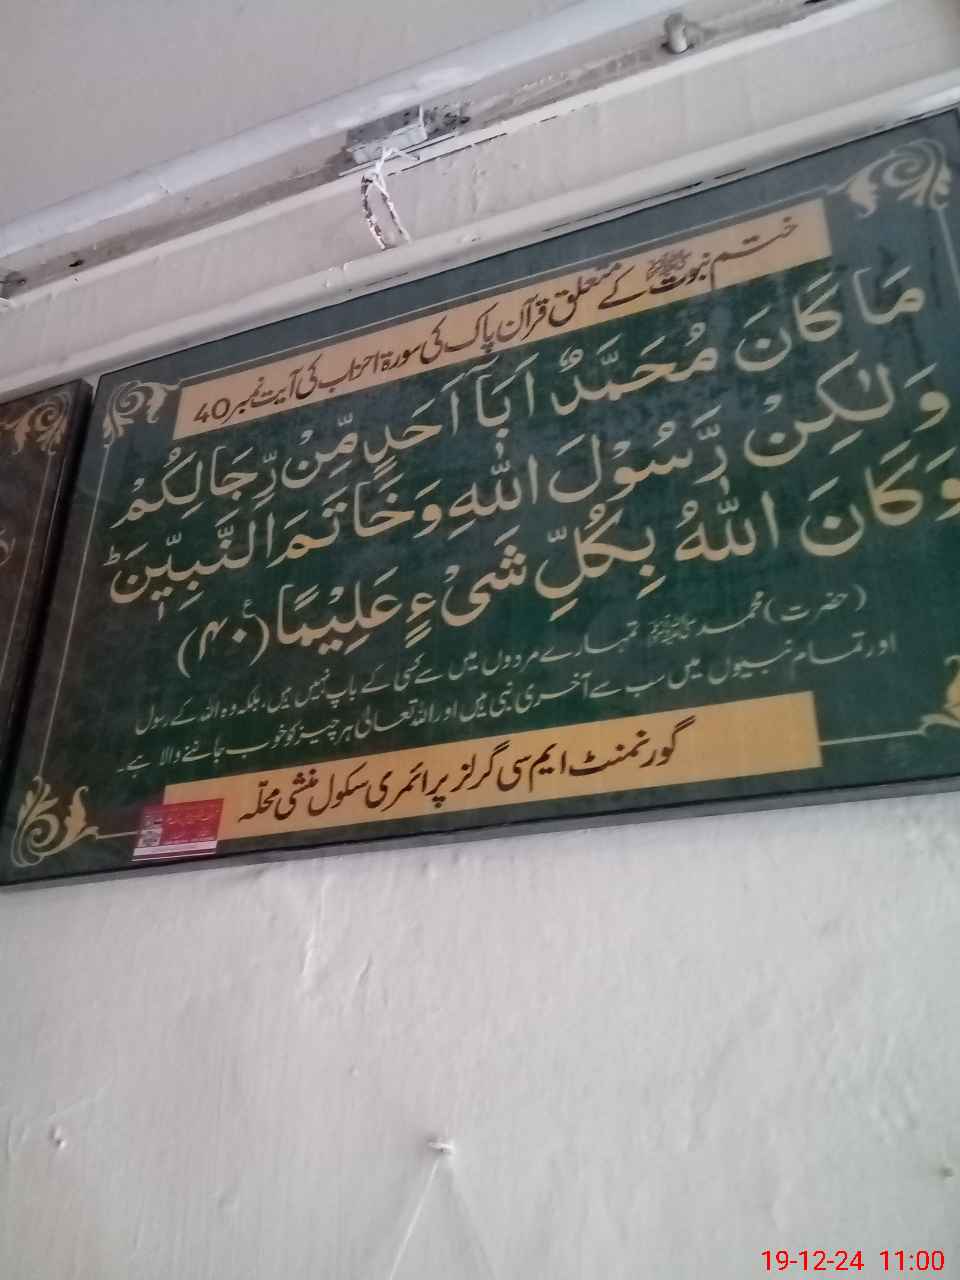 ختم نبوت ﷺ کے متعلق قرآن پاک کی سورۃ احزاب کی آیت نمبر 40
مَا كَانَ مُحَمَّدٌ اَبَآ اَحَدٍ مِّنْ رِّجَالِكُمْ
وَلٰكِنْ رَّسُوْلَ اللّٰهِ وَخَاتَمَ النَّبِيّٖنَ ؕ
وَكَانَ اللّٰهُ بِكُلِّ شَىْءٍ عَلِيْمًا ع (۴۰)
(حضرت) محمد ﷺ تمہارے مردوں میں سے کسی کے باپ نہیں ہیں، بلکہ وہ اللہ کے رسول
اور تمام نبیوں میں سب سے آخری نبی ہیں اور اللہ تعالیٰ ہر چیز کو خوب جاننے والا ہے۔
گورنمنٹ ایم سی گرلز پرائمری سکول منشی محلّہ
19-12-24 11:00